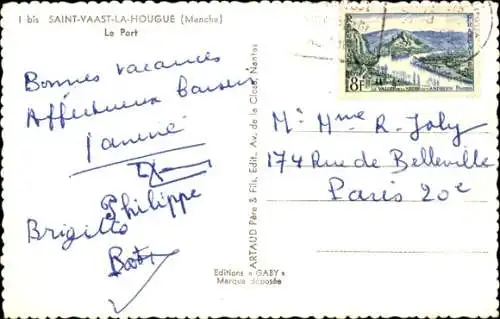 1 bis SAINT-VAAST-LA-HOUGUE (Manche)
Le Port
Bonnes vacances
Affectueux baisers
Janine
Philippe
Brigitte
ARTAUD Père & Fils, Edit., Av. de la Close, Nantes
Editions "GABY"
Marque déposée
8F
LA VALLÉE DE LA SEINE AUX ANDELYS
M. Mme R. Joly
174 Rue de Belleville
Paris 20e